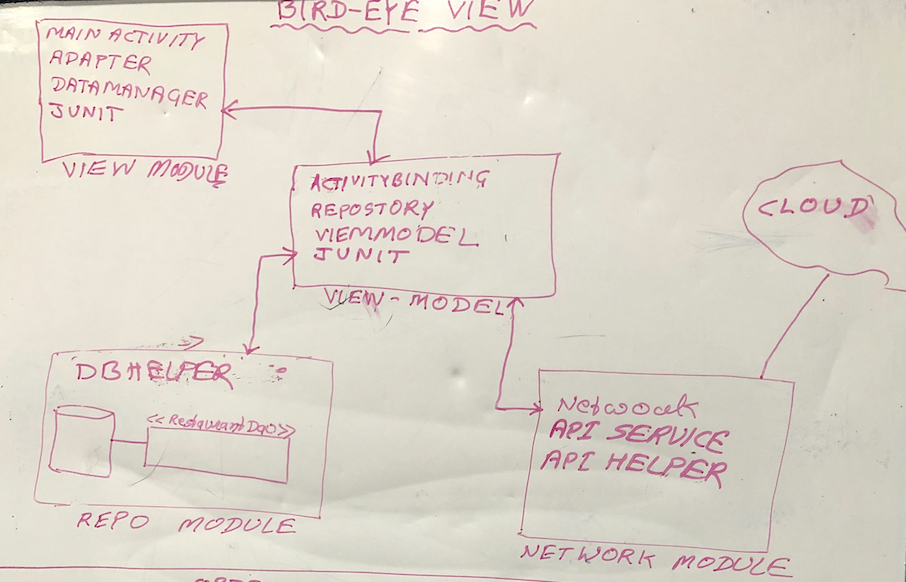 BIRD-EYE VIEW
MAIN ACTIVITY
ADAPTER
DATAMANAGER
JUNIT
VIEW MODULE
ACTIVITYBINDING
REPOSTORY
VIEMMODEL
JUNIT
VIEW-MODEL
CLOUD
DBHELPER
<<RestaurantDao>>
REPO MODULE
Network
API SERVICE
API HELPER
NETWORK MODULE